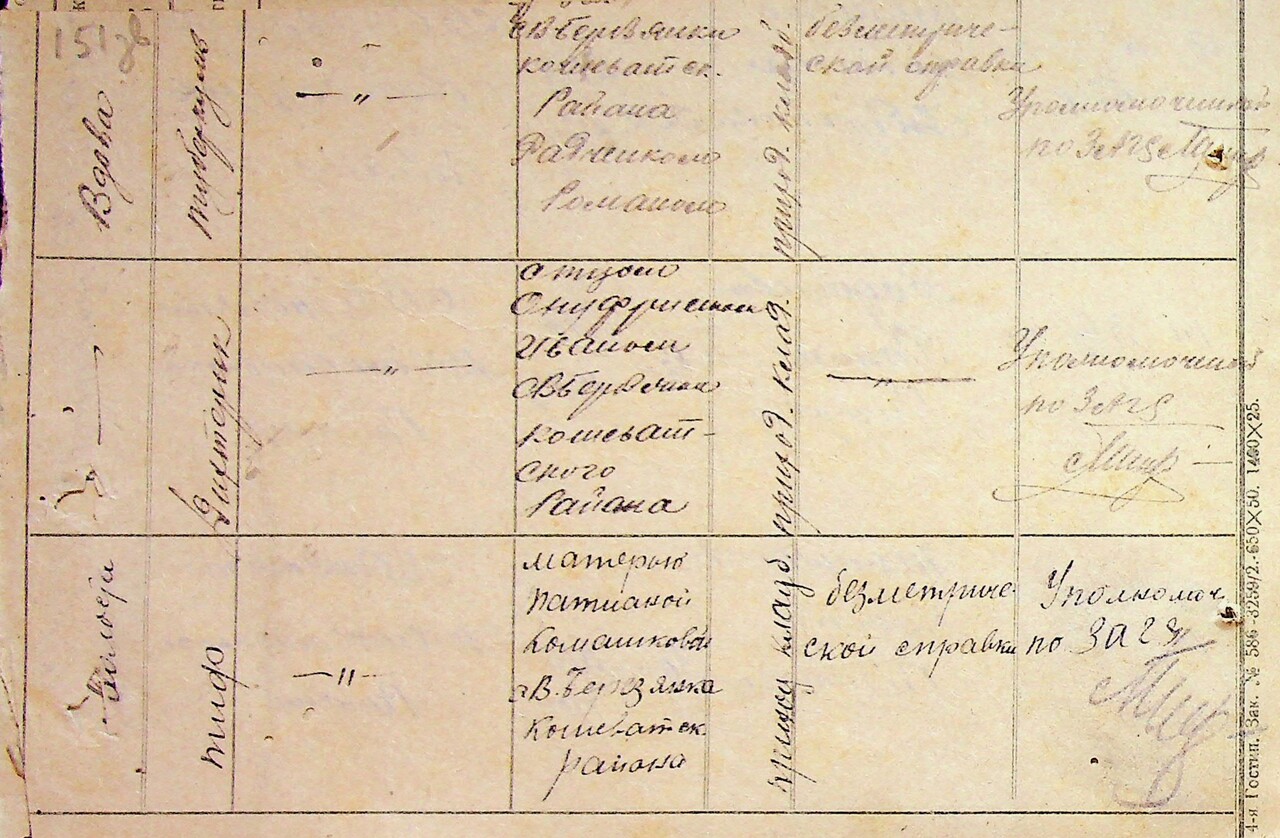 151 зв
Вдова
туберкулез
— „ —
с В. Березянки
кошеватск.
Района
Радченком
Романом
приход. кладб.
без метриче-
ской справки
Уполномоченный
по ЗАГS
— „ —
дифтерик
— „ —
отцом
Онуфриенком
Иваном
с В. Березянки
кошеват-
ского
Района
приход. клад.
— „ —
Уполномоченный
по ЗАГS
тиф
— „ —
матерью
Татианой
Комашковой
с В. Березянка
Кошеватск
района
приход кладб.
без метриче-
ской справки
Уполномоч
по ЗАГS
4-я Гостип. Зак. № 586—3259/2.-650X50. 1400X25.